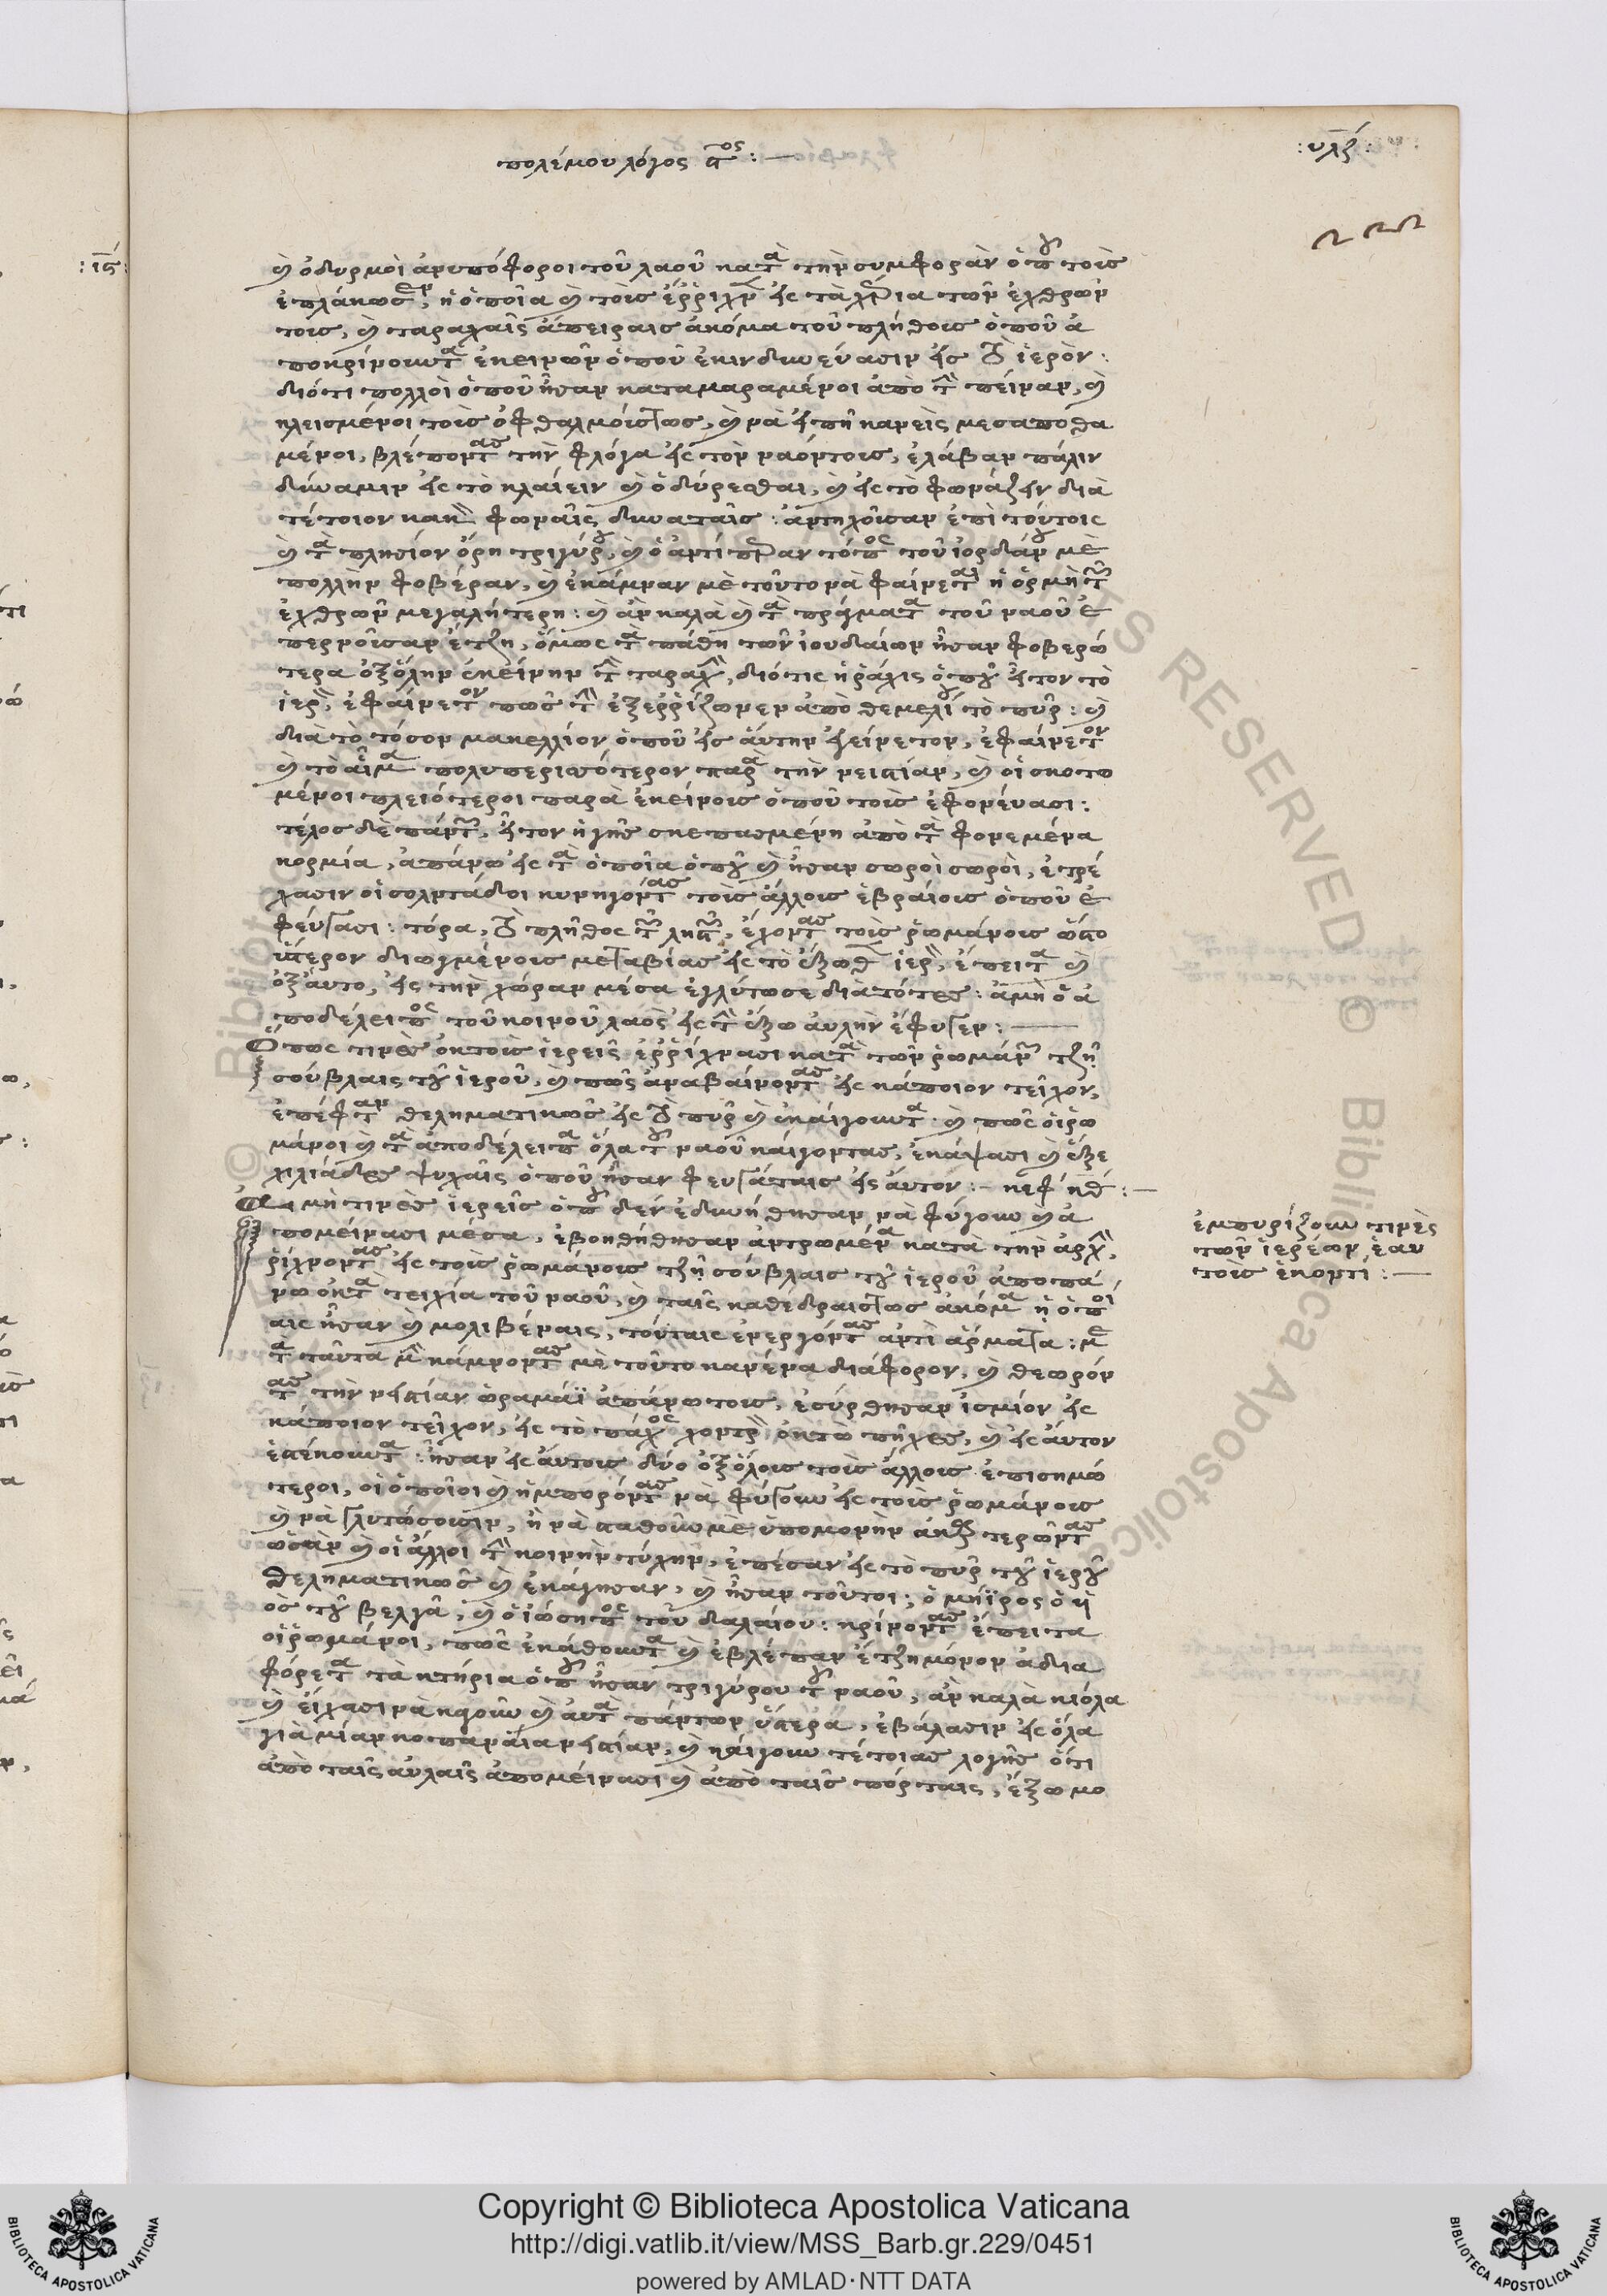 πολέμου λόγος ϛος : —
: υλζ :
222
κὶ ὀδυρμοὶ ἀνυπόφοροι τοῦ λαοῦ κατὰ τὴν συμφορὰν ὁποῦ τοὺς
ἐπλάκωσεν, ἡ ὁποῖα κὶ τοὺς ἔῤῥιχνεν εἰς τὰ χέρια τῶν ἐχθρῶν
τους, κὶ ταραχαῖς ἄπειραις ἀκόμα τοῦ πλήθους ὁποῦ ἀ
ποκρίνουντα ἐκεινῶν ὁποῦ ἐκινδυνεύασιν εἰς τὸ ἱερὸν:
διότι πολλοὶ ὁποῦ ἦσαν καταμαραμένοι ἀπὸ τὴν πεῖναν, κὶ
κλεισμένοι τοὺς ὀφθαλμούς τως, κὶ νὰ εἰπῇ κανεὶς μεσαποθα
μένοι, βλέποντας τὴν φλόγα εἰς τὸν ναόν τους, ἐλάβαν πάλιν
δύναμιν εἰς τὸ κλαίειν κὶ ὀδύρεσθαι, κὶ εἰς τὸ φωνάζειν διὰ
τέτοιον κακὸν φωναῖς δυναταῖς: ἀντηχοῦσαν ἐπὶ τούτοις
κὶ τὰ πλησίον ὄρη τριγύρου, κὶ ὁ ἀντίπεραν τόπος τοῦ ἰορδάνου μὲ
πολλὴν φοβέραν, κὶ ἐκάμναν μὲ τοῦτο νὰ φαίνεται ἡ ὁρμὴ τῶν
ἐχθρῶν μεγαλήτερη: κὶ ἂν καλὰ κὶ τὰ πράγματα τοῦ ναοῦ ἐ
περνοῦσαν ἔτζη, ὅμως τὰ πάθη τῶν ἰουδαίων ἦσαν φοβερώ
τερα ὀξ ὅλην ἐκείνην τὴν ταραχὴν, διότις ἡ ῥάχις ὁποῦ ἦτον τὸ
ἱερὸν, ἐφαίνετον πῶς τὴν ἐξεῤῥίζωνεν ἀπὸ θεμελίου τὸ πῦρ: κὶ
διὰ τὸ τόσον μακελλίον ὁποῦ εἰς αὐτὴν ἐγείνετον, ἐφαίνετον
κὶ τὸ αἷμα πολυπερισσότερον παρὰ τὴν ἱστίαν, κὶ οἱ σκοτω
μένοι πλειότεροι παρὰ ἐκείνους ὁποῦ τοὺς ἐφονεύασι:
τέλος δὲ πάντων, ἦτον ἡ γῆς σκεπασμένη ἀπὸ τὰ φονεμένα
κορμία, ἀπάνω εἰς τὰ ὁποῖα ὁποῦ κὶ ἦσαν σωροὶ σωροὶ, ἐτρέ
χασιν οἱ σολντάδοι κυνηγόντας τοὺς ἄλλους ἑβραίους ὁποῦ ἐ
φεύγασι: τόρα, τὸ πλῆθος τῶν ληστῶν, ἔχοντας τοὺς ῥωμάνους ὥστο
ὕστερον διωγμένους μετὰ βίας εἰς τὸ ἔξωθεν ἱερὸν, ἔπειτα κὶ
ὀξ αὐτὸ, εἰς τὴν χώραν μέσα ἐγλύτωσε διὰ τότες: ἀμὴ ὁ ἀ
ποδέλειπος τοῦ κοινοῦ λαὸς εἰς τὴν ἔξω αὐλὴν ἔφυγεν: —
Ὅπως τινὲς ὀκ τοὺς ἱερεῖς ἐῤῥίχνασι κατὰ τῶν ῥωμάνων τζῆ
σούβλαις τοῦ ἱεροῦ, κὶ πῶς ἀναβαίνοντας εἰς κάποιον τεῖχον,
ἐπέφταν θεληματικῶς εἰς τὸ πῦρ κὶ ἐκαίγουντα κὶ πῶς οἱ ῥω
μάνοι κὶ τὰ ἀποδέλειπα ὅλα τοῦ ναοῦ καίγοντας, ἐκάψασι κὶ ἕξε
χιλιάδες ψυχαῖς ὁποῦ ἦσαν φευγάταις εἰς αὐτόν: – κεφ κθ: —
Ἀμὴ τινὲς ἱερεῖς ὁποῦ δὲν ἐδυνήθησαν νὰ φύγουν κὶ ἀ
πομείνασι μέσα, ἐβοηθήθησαν ἀντρωμένα κατὰ τὴν ἀρχὴν,
ῥίχνοντας εἰς τοὺς ῥωμάνους τζῆ σούβλαις τοῦ ἱεροῦ ἀποπά
νω ὀκ τὰ τειχία τοῦ ναοῦ, κὶ ταῖς καθέδραις τως ἀκόμα ἡ ὁποῖ
αις ἦσαν κὶ μολιβέναις, τούταις ἐνεργόντας ἀντὶ ἄρματα: μὲ
τὰ ταῦτα μὴ κάμνοντας μὲ τοῦτο κανένα διάφορον, κὶ θεωρόν
τας τὴν ἱστίαν ὁραμάϊ ἀπάνω τους, ἐσύρθησαν ἰσμίον εἰς
κάποιον τεῖχον, εἰς τὸ πάχος χοντρὸν ὀκτὼ πῆχες, κὶ εἰς αὐτὸν
ἐστέκουντα: ἦσαν εἰς αὐτοὺς δύο ὀξ ὅλους τοὺς ἄλλους ἐπισημώ
τεροι, οἱ ὁποῖοι κὶ ἠμπορόντας νὰ φύγουν εἰς τοὺς ῥωμάνους
κὶ νὰ γλυτώσουσιν, ἢ νὰ σταθοῦν μὲ ὑπομονὴν ἀκαρτερῶντας
ὡσὰν κὶ οἱ ἄλλοι τὴν κοινὴν τύχην, ἐπέσαν εἰς τὸ πῦρ τοῦ ἱεροῦ
θεληματικῶς κὶ ἐκάγησαν, κὶ ἦσαν τοῦτοι; ὁ μηΐρος ὁ υἱ
ὸς τοῦ βελγᾶ, κὶ ὁ ἰώσηπος τοῦ δαλαίου: κρίνοντας ἔπειτα
οἱ ῥωμάνοι, πῶς ἐκάθουντα κὶ ἐβλέπαν ἔτζη μόνον ἀδια
φόρετα τὰ κτήρια ὁποῦ ἦσαν τριγύρου τοῦ ναοῦ, ἂν καλὰ κι ὅλα
κὶ εἴχασι νὰ καοῦν κὶ αὐτὰ πάντων ὕστερα, ἐβάλασιν εἰς ὅλα
γιὰ μίαν κοπανάϊαν ἱστίαν, κὶ καίγουν τέτοιας λογῆς ὅτι
ἀπὸ ταῖς αὐλαῖς ἀπομείνασι κὶ ἀπὸ ταῖς πόρταις, ἔξω μο
ἐμπυρίζουν τινὲς
τῶν ἱερέων ἑαυ
τοὺς ἑκοντί: —
: ιϛ :
Copyright © Biblioteca Apostolica Vaticana
http://digi.vatlib.it/view/MSS_Barb.gr.229/0451
powered by AMLAD·NTT DATA